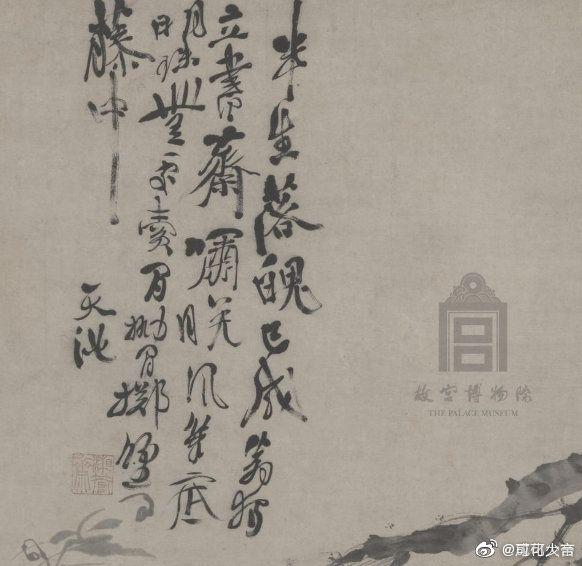 半生落魄已成翁獨
立書齋嘯晚風筆底
明珠無處賣閒拋閒擲野
藤中
天池
故宫博物院
THE PALACE MUSEUM